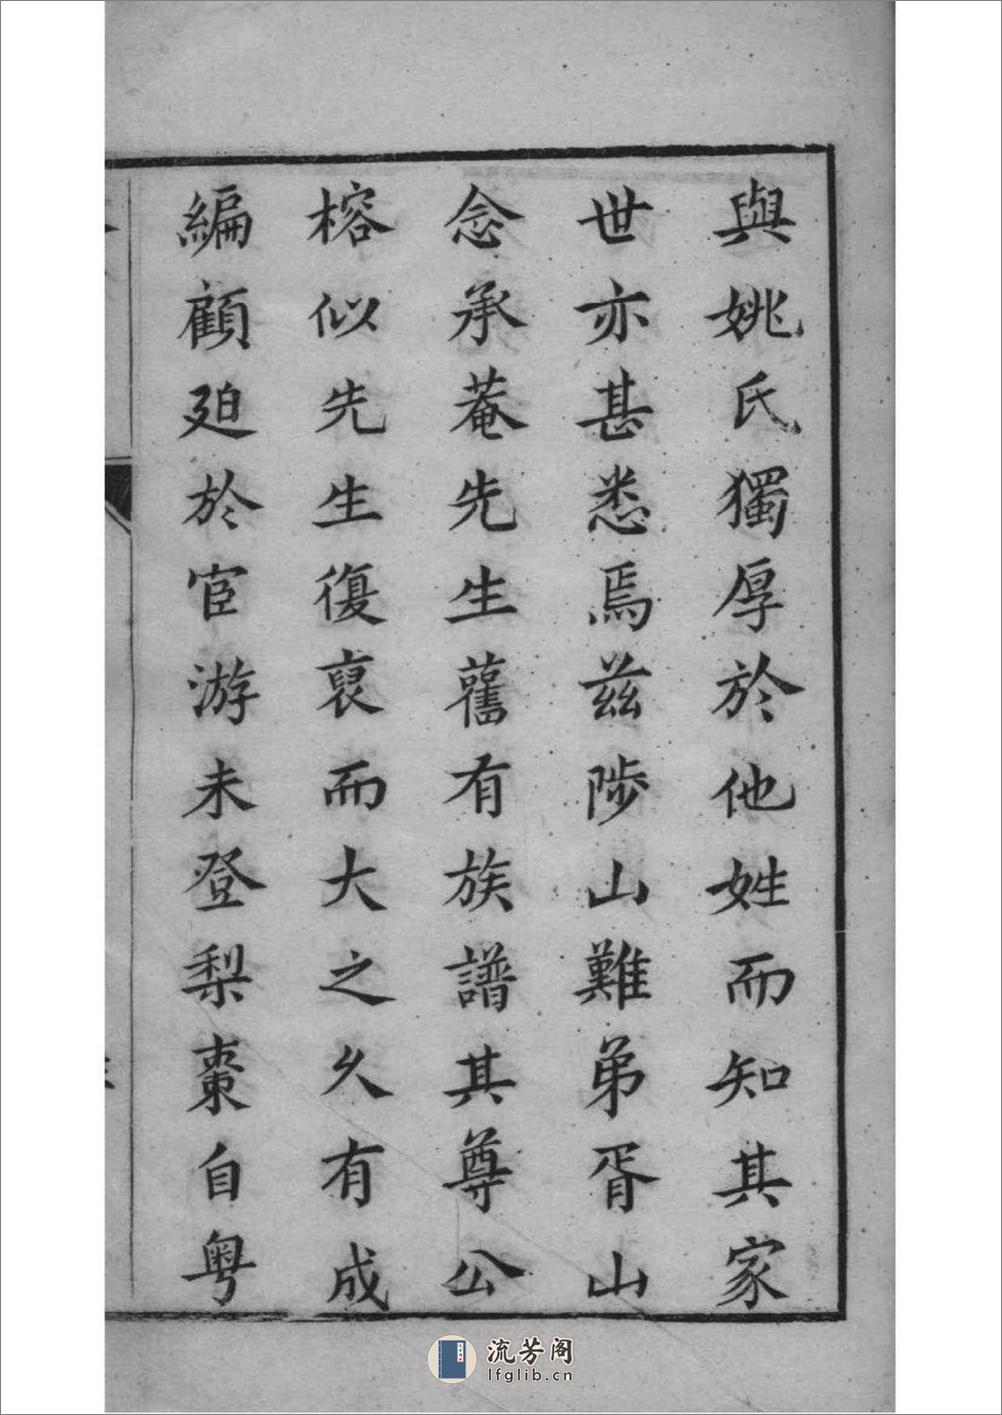 與姚氏獨厚於他姓而知其家
世亦甚悉焉兹陟山難弟胥山
念承菴先生舊有族譜其尊公
榕似先生復裒而大之久有成
編顧廹於宦游未登梨棗自粤
流芳阁
lfglib.cn